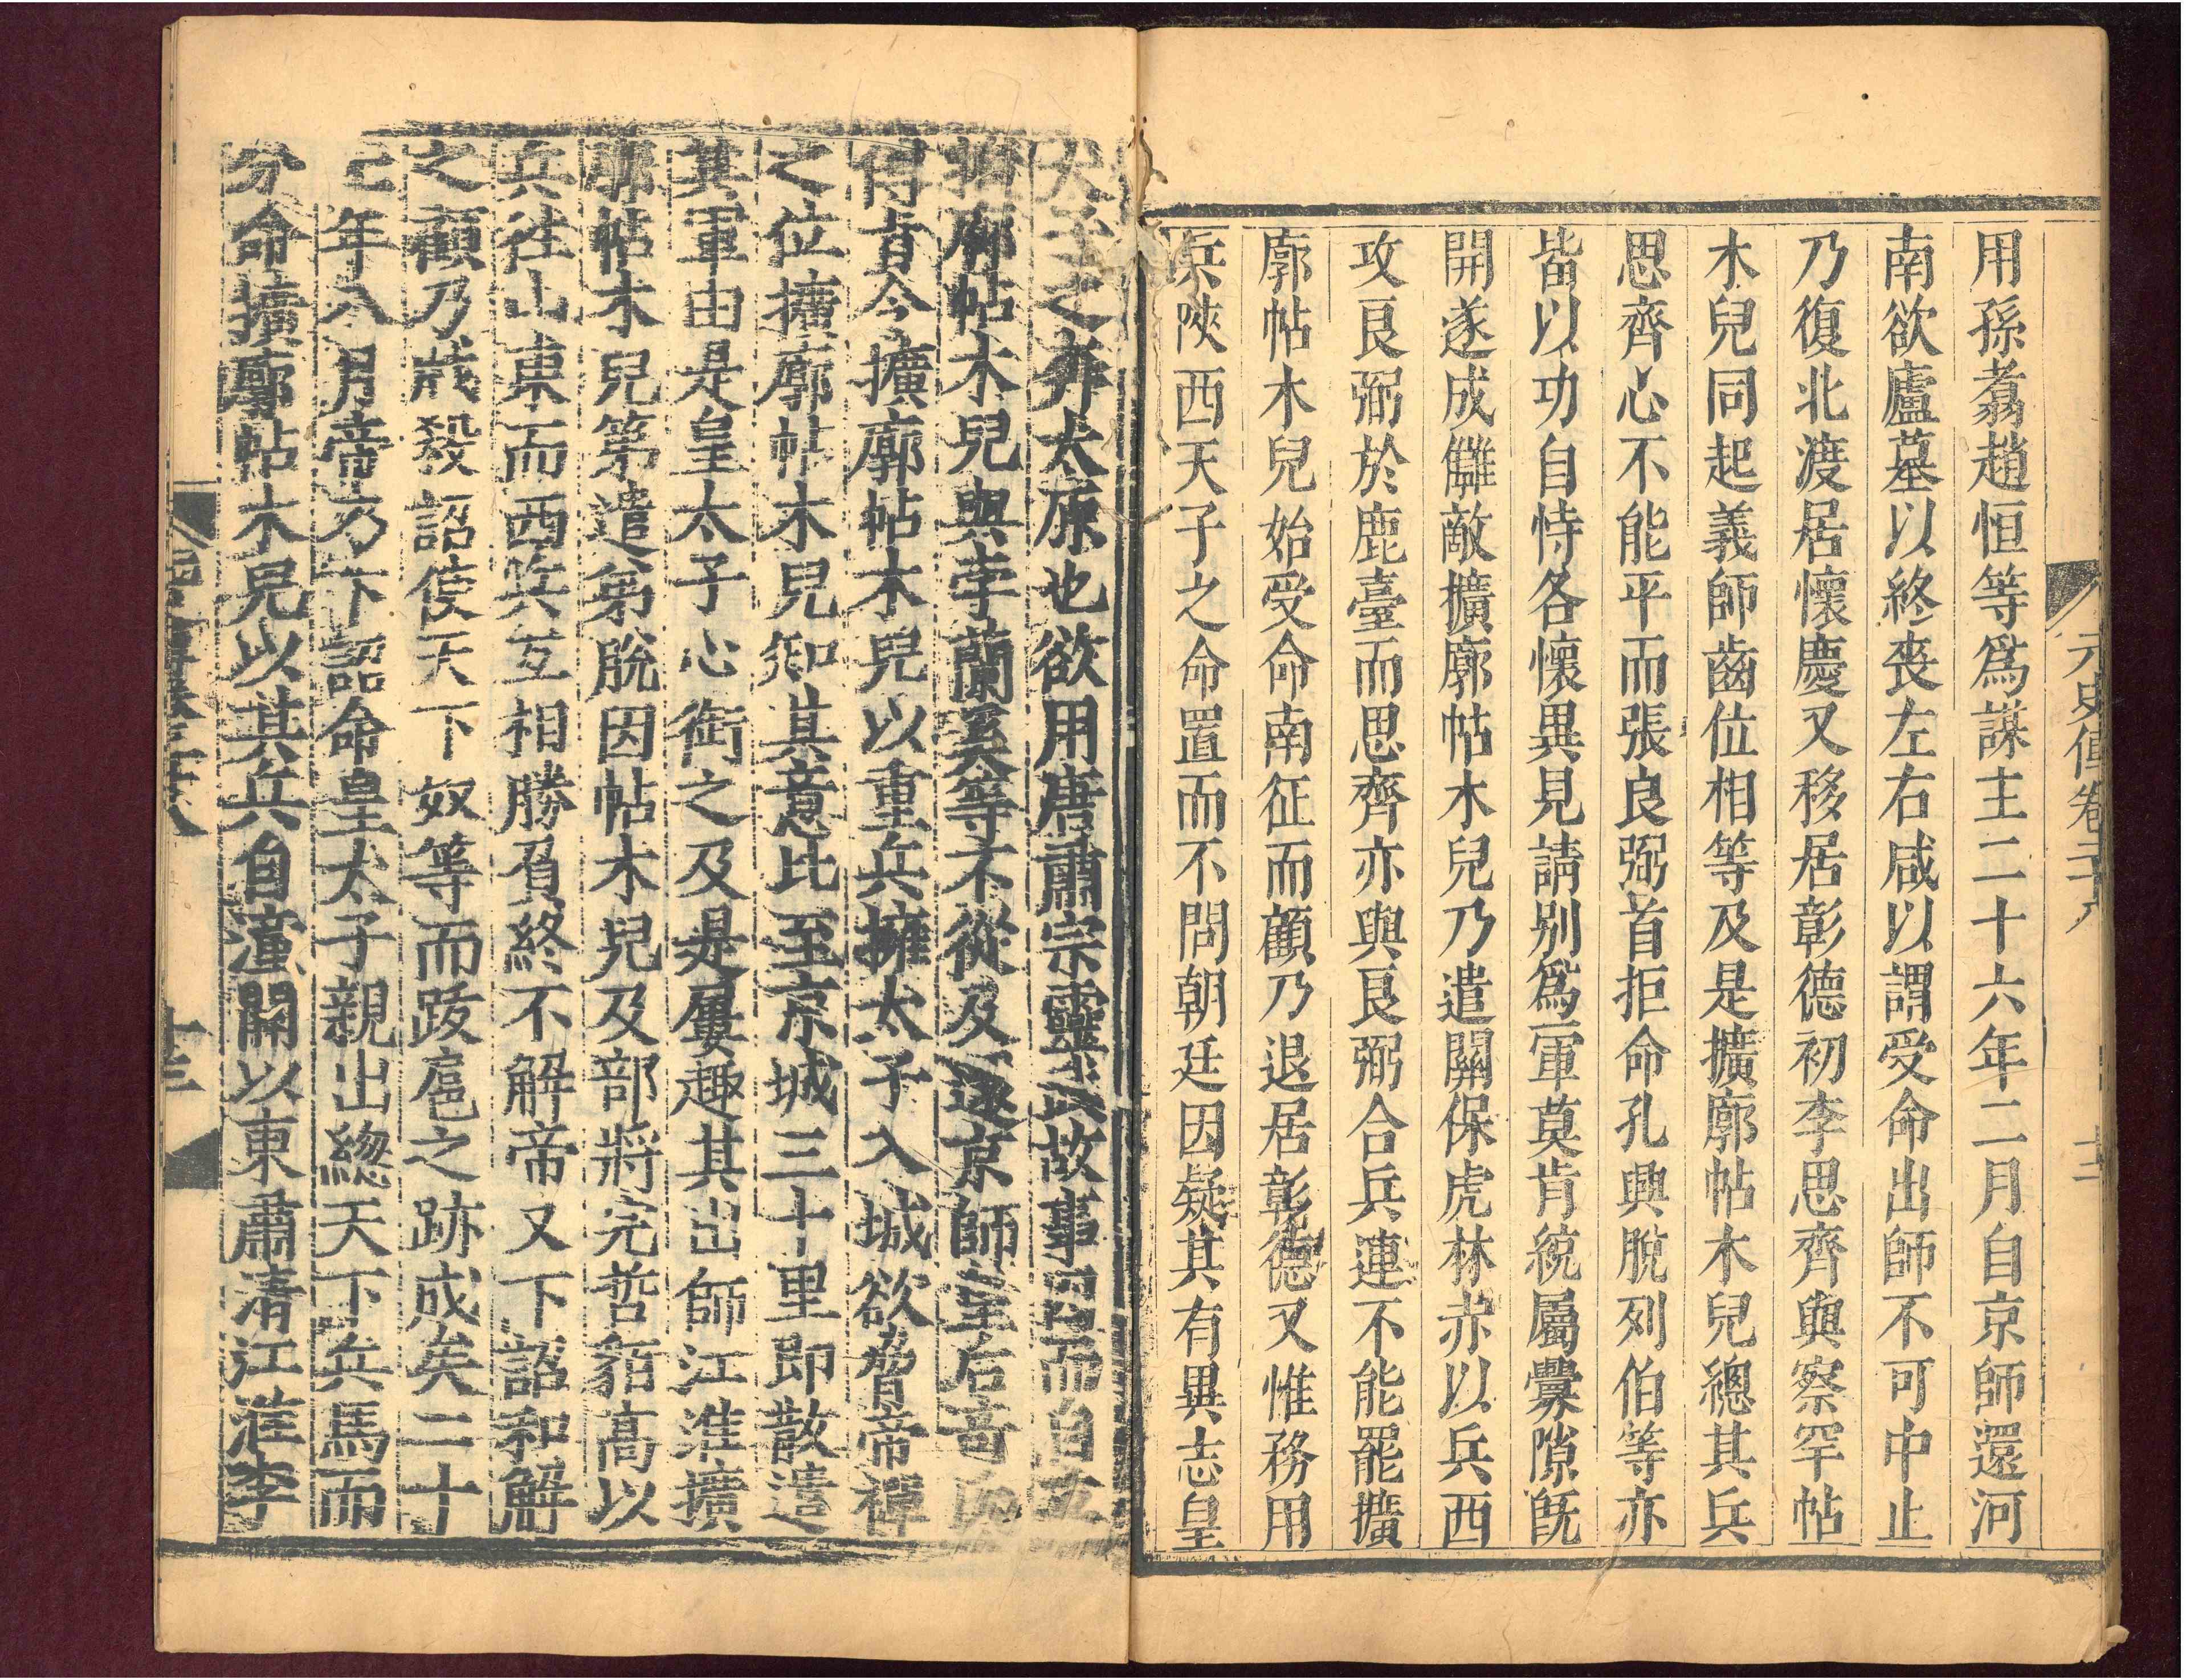 元史傳卷二十八
十二
用孫翥趙恒等爲謀主二十六年二月自京師還河
南欲廬墓以終喪左右咸以謂受命出師不可中止
乃復北渡居懷慶又移居彰德初李思齊與察罕帖
木兒同起義師齒位相等及是擴廓帖木兒總其兵
思齊心不能平而張良弼首拒命孔興脫列伯等亦
皆以功自恃各懷異見請别爲一軍莫肯統屬釁隙旣
開遂成讎敵擴廓帖木兒乃遣關保虎林赤以兵西
攻良弼於鹿臺而思齊亦與良弼合兵連不能罷擴
廓帖木兒始受命南征而顧乃退居彰德又惟務用
兵陝西天子之命置而不問朝廷因疑其有異志皇
太子之奔太原也欲用唐肅宗靈武故事因而自立
擴廓帖木兒與孛蘭奚等不從及還京師皇后
傳旨令擴廓帖木兒以重兵擁太子入城欲脅帝禪
之位擴廓帖木兒知其意比至京城三十里即散遣
其軍由是皇太子心銜之及是屢趣其出師江淮擴
廓帖木兒第遣弟脫因帖木兒及部將完哲貊高以
兵往山東而西兵互相勝負終不解帝又下詔和解
之顧乃戕殺詔使天下奴等而跋扈之跡成矣二十
七年八月帝乃下詔命皇太子親出緫天下兵馬而
分命擴廓帖木兒以其兵自潼關以東肅清江淮李
十三